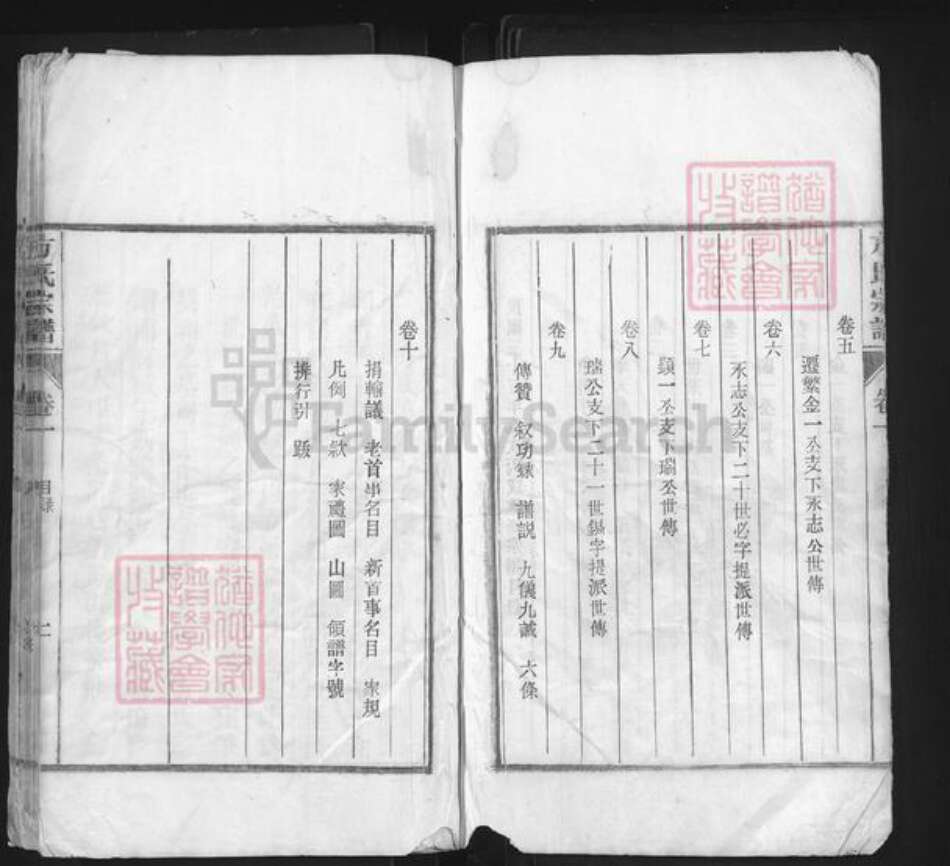 卷五
遷繁金一公支下永志公世傳
卷六
永志公支下二十世必字提派世傳
卷七
顯一公支下瑞公世傳
卷八
瑞公支下二十一世錫字提派世傳
卷九
傳贊 叙功錄 譜説 九儀九誡 六條
卷十
捐輸議 老首事名目 新首事名目 家規
凡例 七欵 家禮圖 山圖 領譜字號
排行引 跋
方氏宗譜 卷一 目錄
方氏宗譜 卷一
譜學會
收藏
譜學會
收藏
FamilySearch